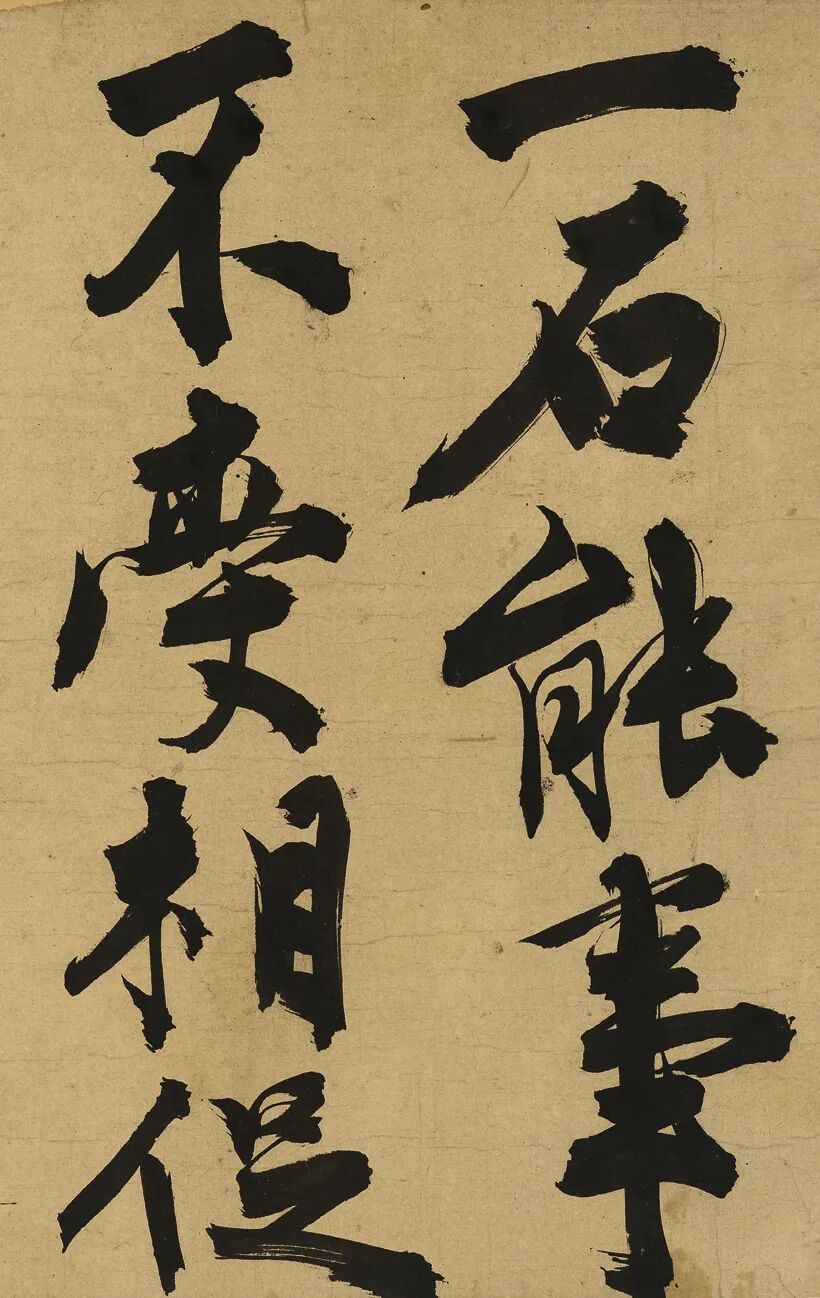 一石能事
不受相促